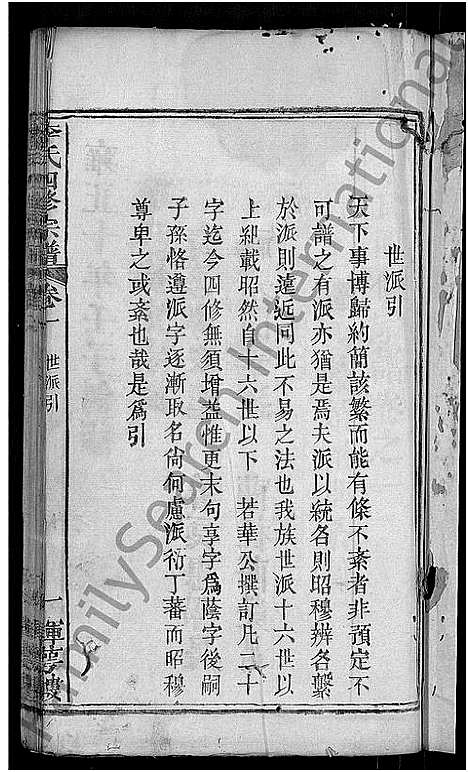 世派引
天下事博歸約簡該繁而能有條不紊者非預定不
可譜之有派亦猶是焉夫派以統名則昭穆辨各繫
於派則遠近同此不易之法也我族世派十六世以
上紀載昭然自十六世以下 若華公撰訂凡二十
字迄今四修無須增益惟更末句享字爲蔭字後嗣
子孫恪遵派字逐漸取名尙何慮派衍丁蕃而昭穆
尊卑之或紊也哉是爲引
李氏四修宗譜 卷一 世派引 一
FamilySearch International